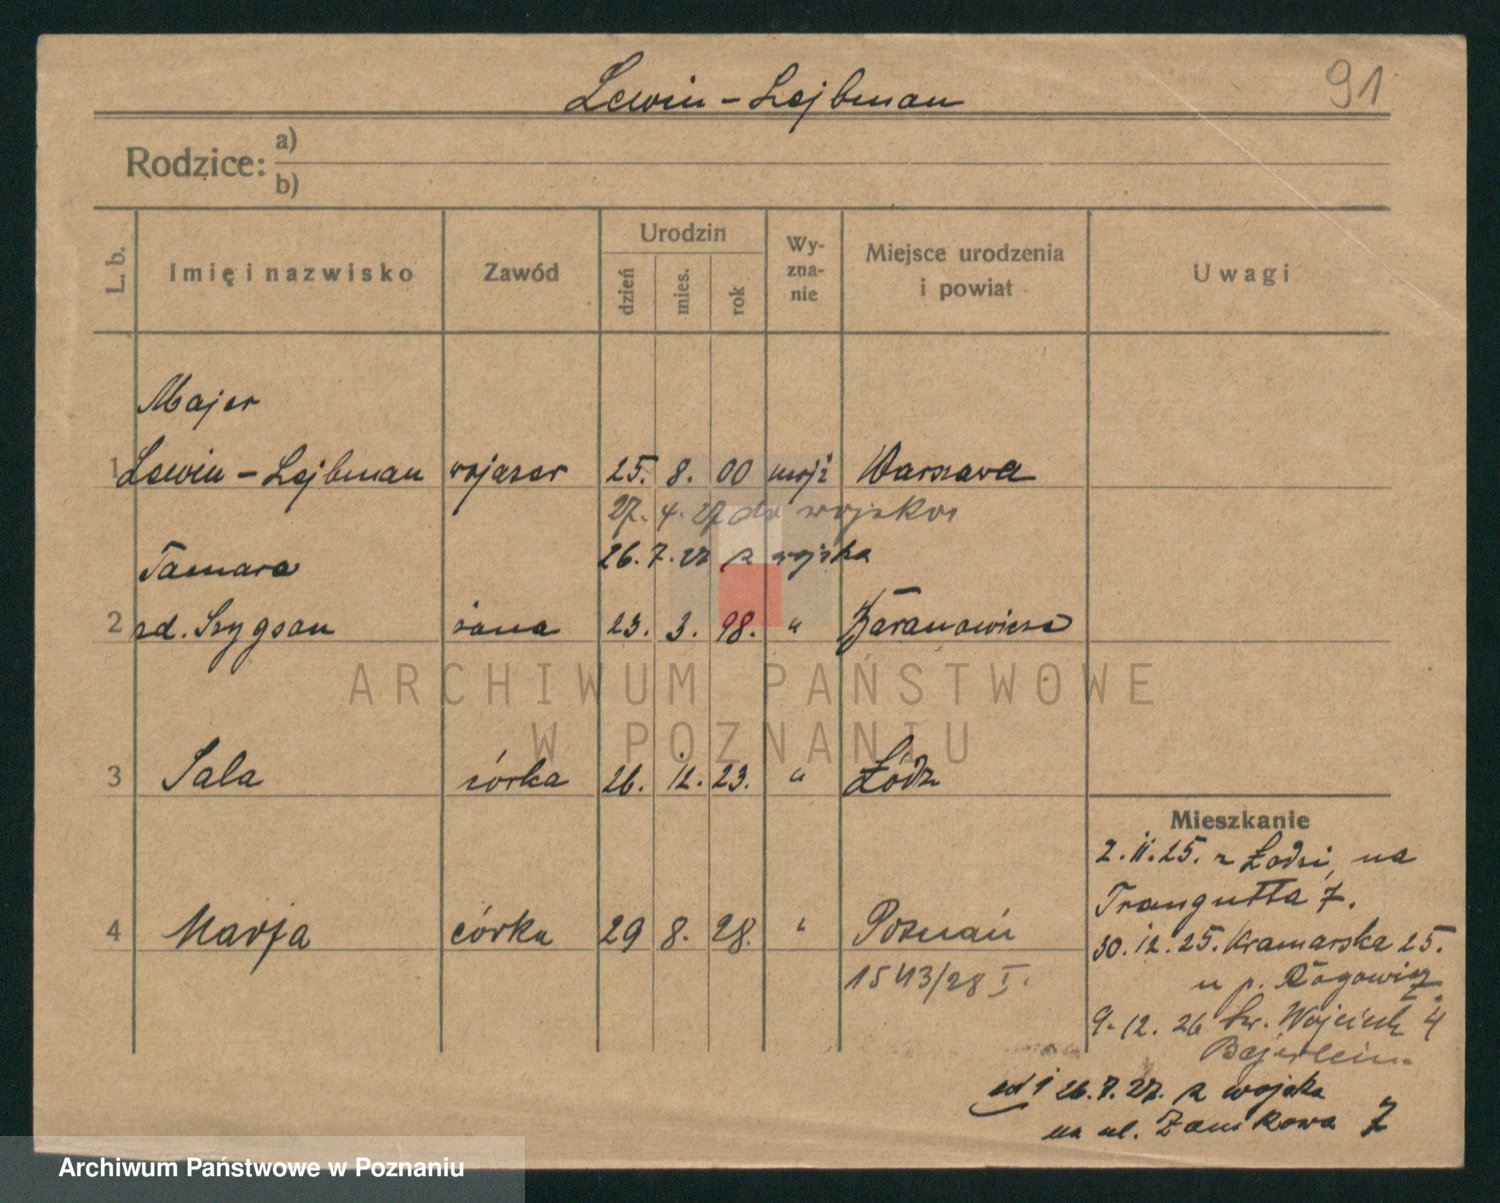 Lewin - Lejbman
91
Rodzice:
a)
b)
L. b.
Imię i nazwisko
Zawód
Urodzin
dzień
mies.
rok
Wy-
zna-
nie
Miejsce urodzenia
i powiat
Uwagi
Majer
1 Lewin - Lejbman wojażer 25. 8. 00 mojż Warszawa
27. 4. 27 do wojska
26. 7. 27 z wojska
Tamara
2 zd. Szygson żona 23. 3. 98. " Baranowicze
3 Sala córka 26. 12. 23. " Łódz
4 Marja córka 29 8. 28. " Poznań
1543/28 I.
Mieszkanie
2. 11. 25. z Łodzi, na
Traugutta 7.
30. 12. 25. Kramarska 25.
u p. Rogowicz
9. 12. 26 św. Wojciech 4
26. 7. 27. z wojska
na ul. Zamkowa 7
ARCHIWUM PAŃSTWOWE
W POZNANIU
Archiwum Państwowe w Poznaniu